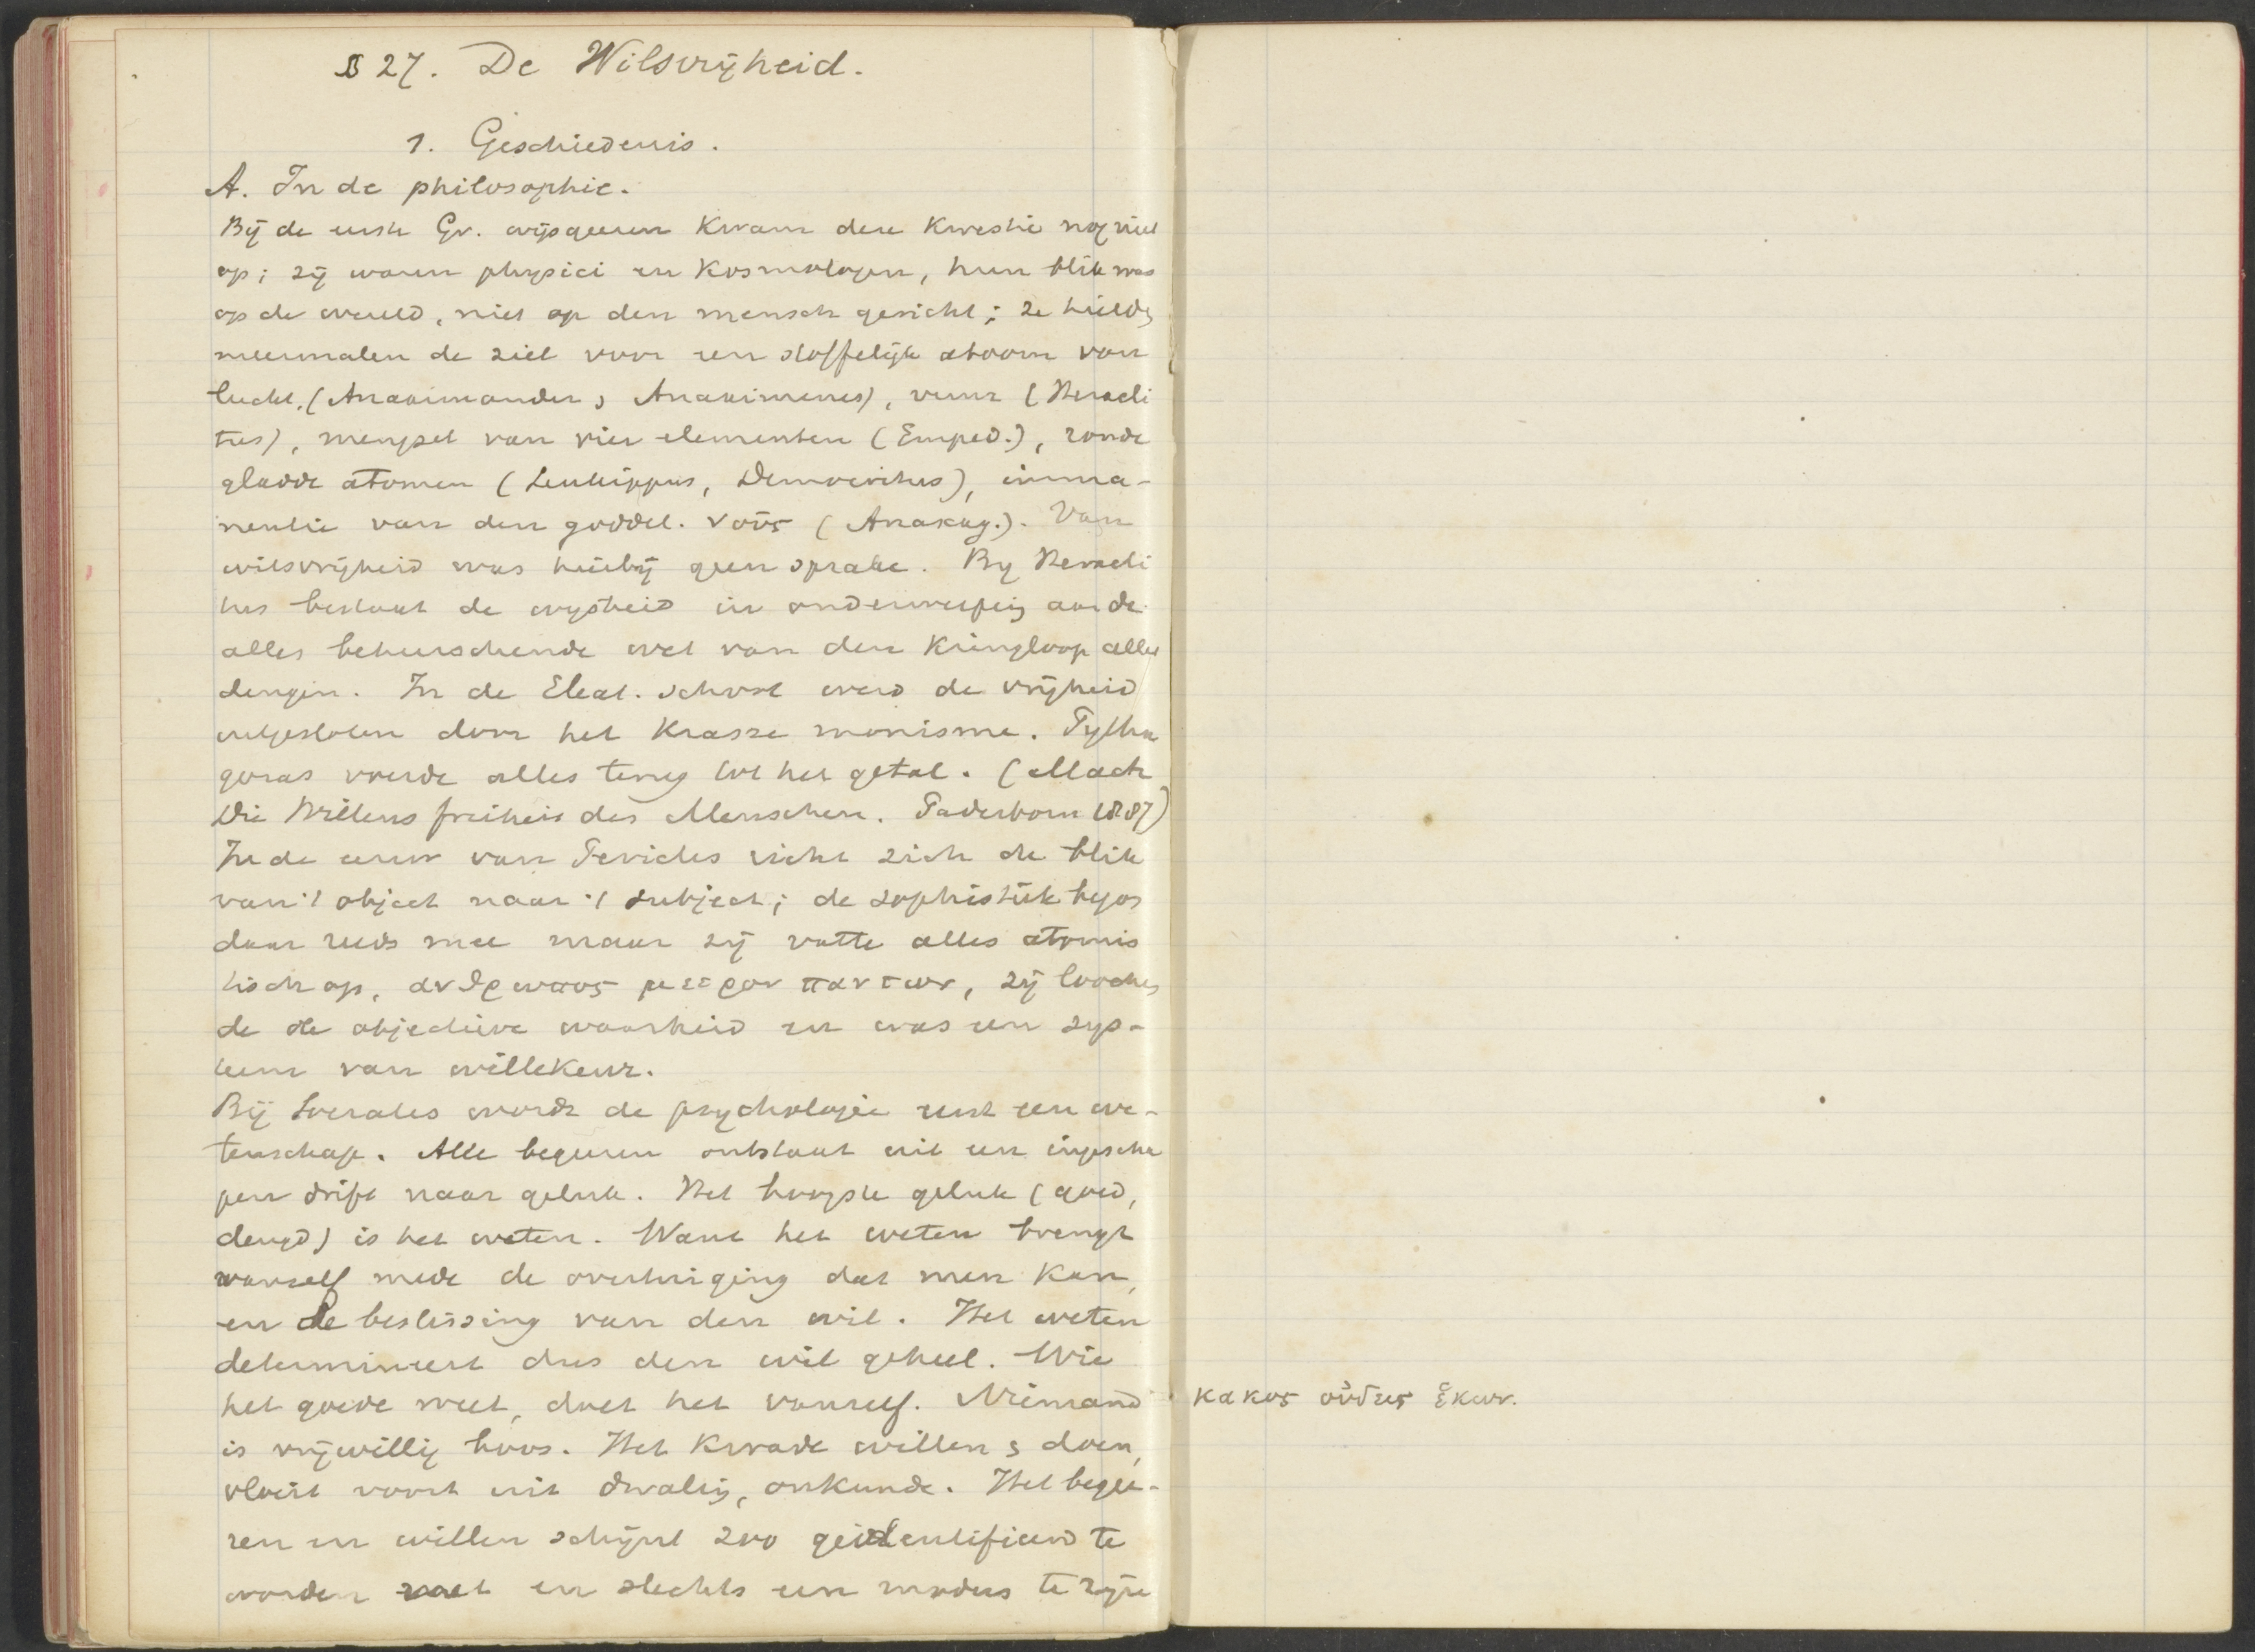 § 27. De Wilsvrijheid.
1. Geschiedenis.
A. In de philosophie.
Bij de eerste Gr. wijsgeeren kwam deze kwestie nog niet
op; zij waren physici en kosmologen, hun blik was
op de wereld, niet op den mensch gericht; ze hielden
meermalen de ziel voor een stoffelijk atoom van
lucht, (Anaximander, Anaximenes), vuur (Heracli
tus), mengsel van vier elementen (Emped.), ronde
gladde atomen (Leukippus, Democritus), imma-
nentie van den goddel. νοῦς (Anaxag.). Van
wilsvrijheid was hierbij geen sprake. By Heracli
tus bestaat de wysheid in onderwerping aan de
alles beheerschende wet van den kringloop aller
dingen. In de Eleat. school werd de vrijheid
uitgesloten door het krasse monisme. Pytha
goras voerde alles terug tot het getal. (Mach
Die Willensfreiheit des Menschen. Paderborn 1887)
In de eeuw van Pericles richt zich de blik
van 't object naar 't subject; de sophistiek begon
daar reeds mee maar zij vatte alles atomis
tisch op, ανθρωπος μετρον παντων, zij looche
de de objectieve waarheid en was een sys-
teem van willekeur.
Bij Socrates wordt de psychologie eerst een we-
tenschap. Alle begeeren ontstaat uit een ingescha
pen drift naar geluk. Het hoogste geluk (goed,
deugd) is het weten. Want het weten brengt
vanself mede de overtuiging dat men kan,
en de beslissing van den wil. Het weten
determineert dus den wil geheel. Wie
het goede weet, doet het vanself. Niemand
is vrijwillig boos. Het kwade willen & doen,
vloeit voort uit dwaling, onkunde. Het begee-
ren en willen schijnt zoo geidentificeerd te
worden en slechts een modus te zijn
κακος οὐδεις ἑκων.